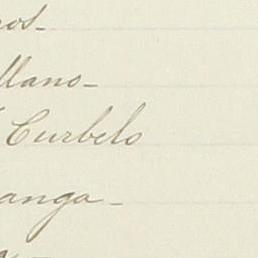 ros-
llano-
Curbelo
anga-